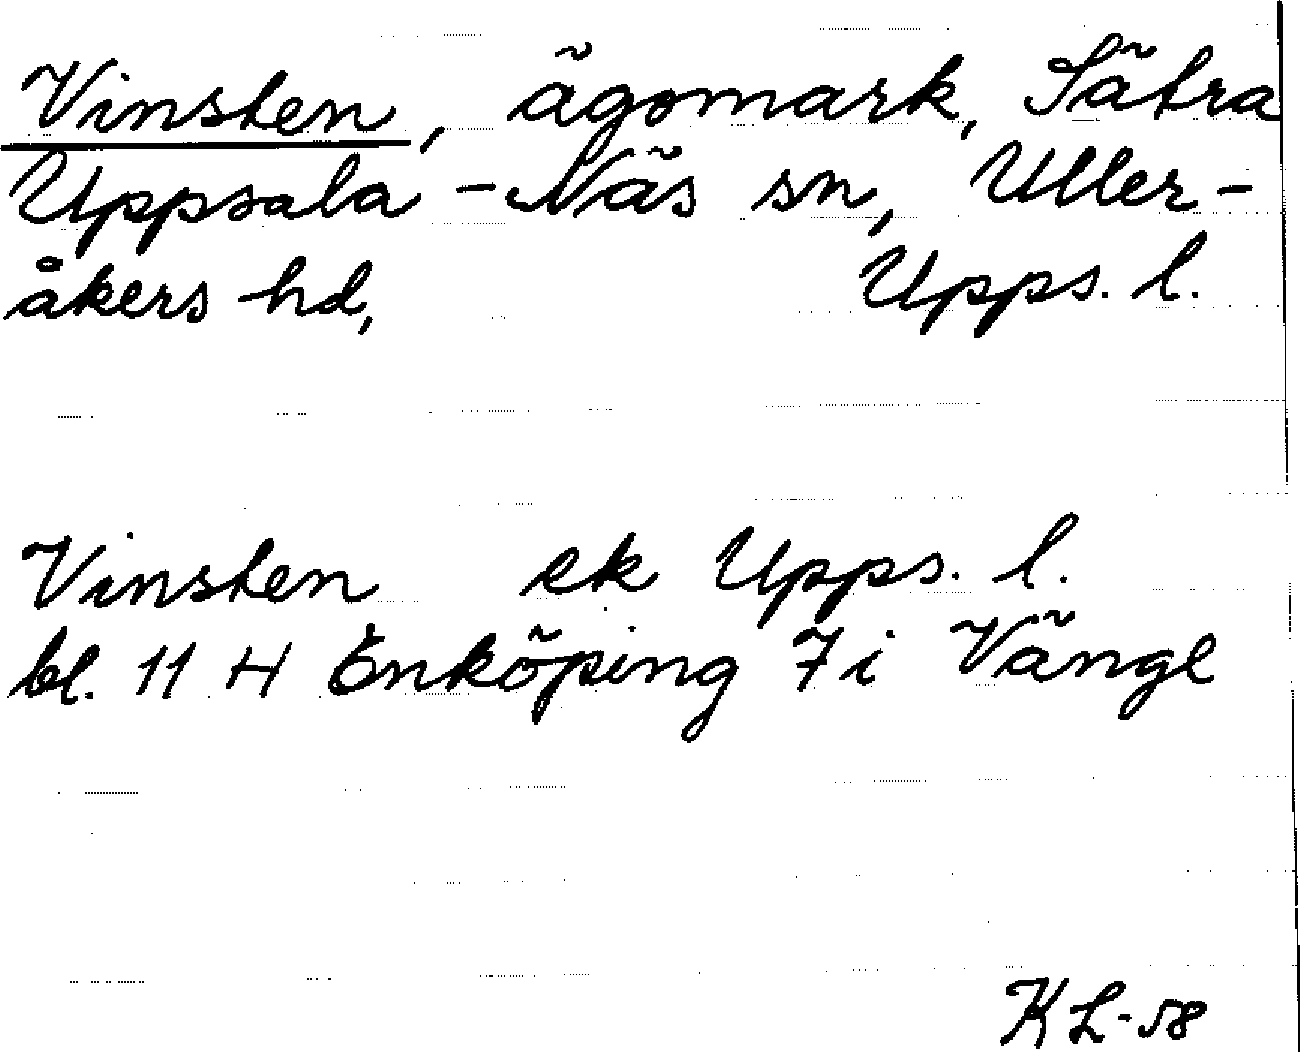 Vinsten, ägomark, Sätra
Uppsala-Näs sn, Uller-
åkers hd, Upps. l.
Vinsten ek Upps. l.
bl. 11 H Enköping 7i Vänge
KL-58